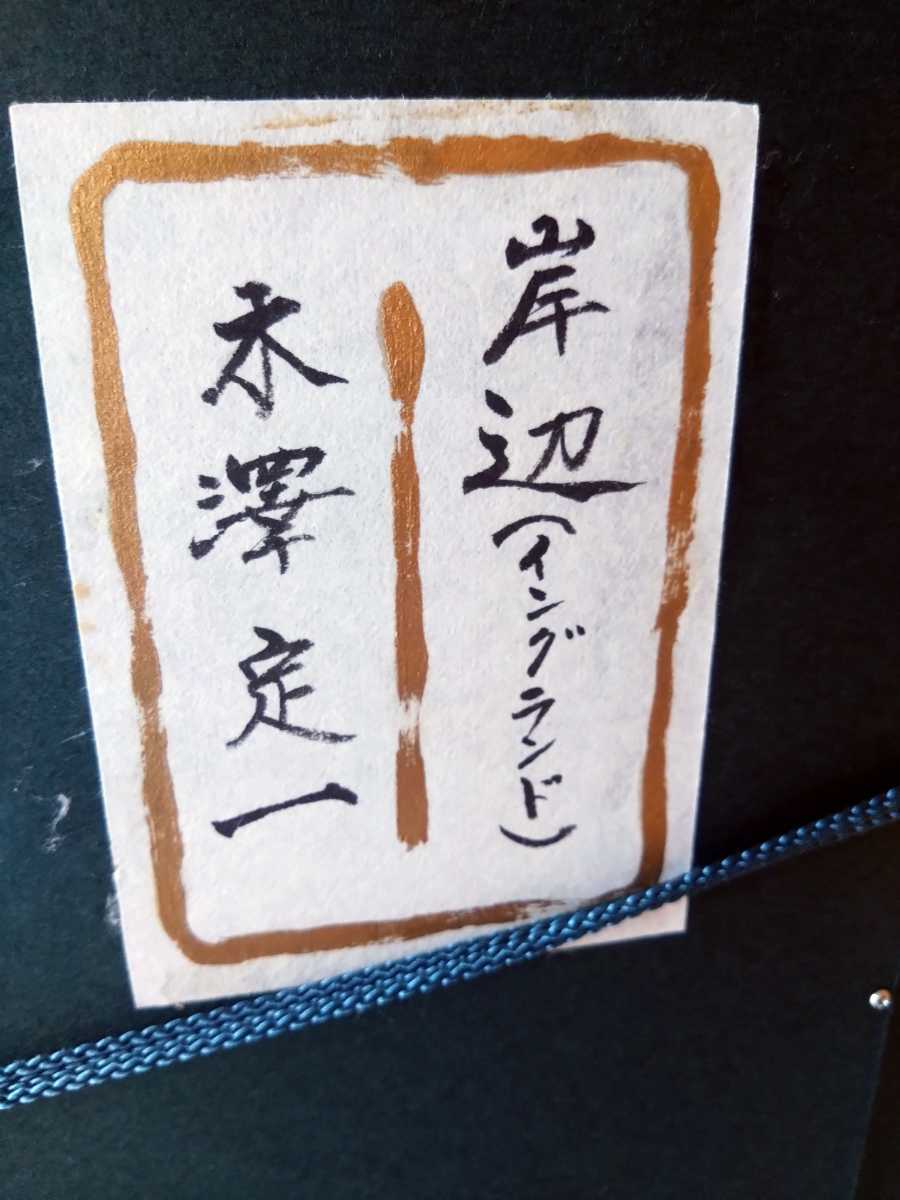 岸辺(イングランド)
木澤定一